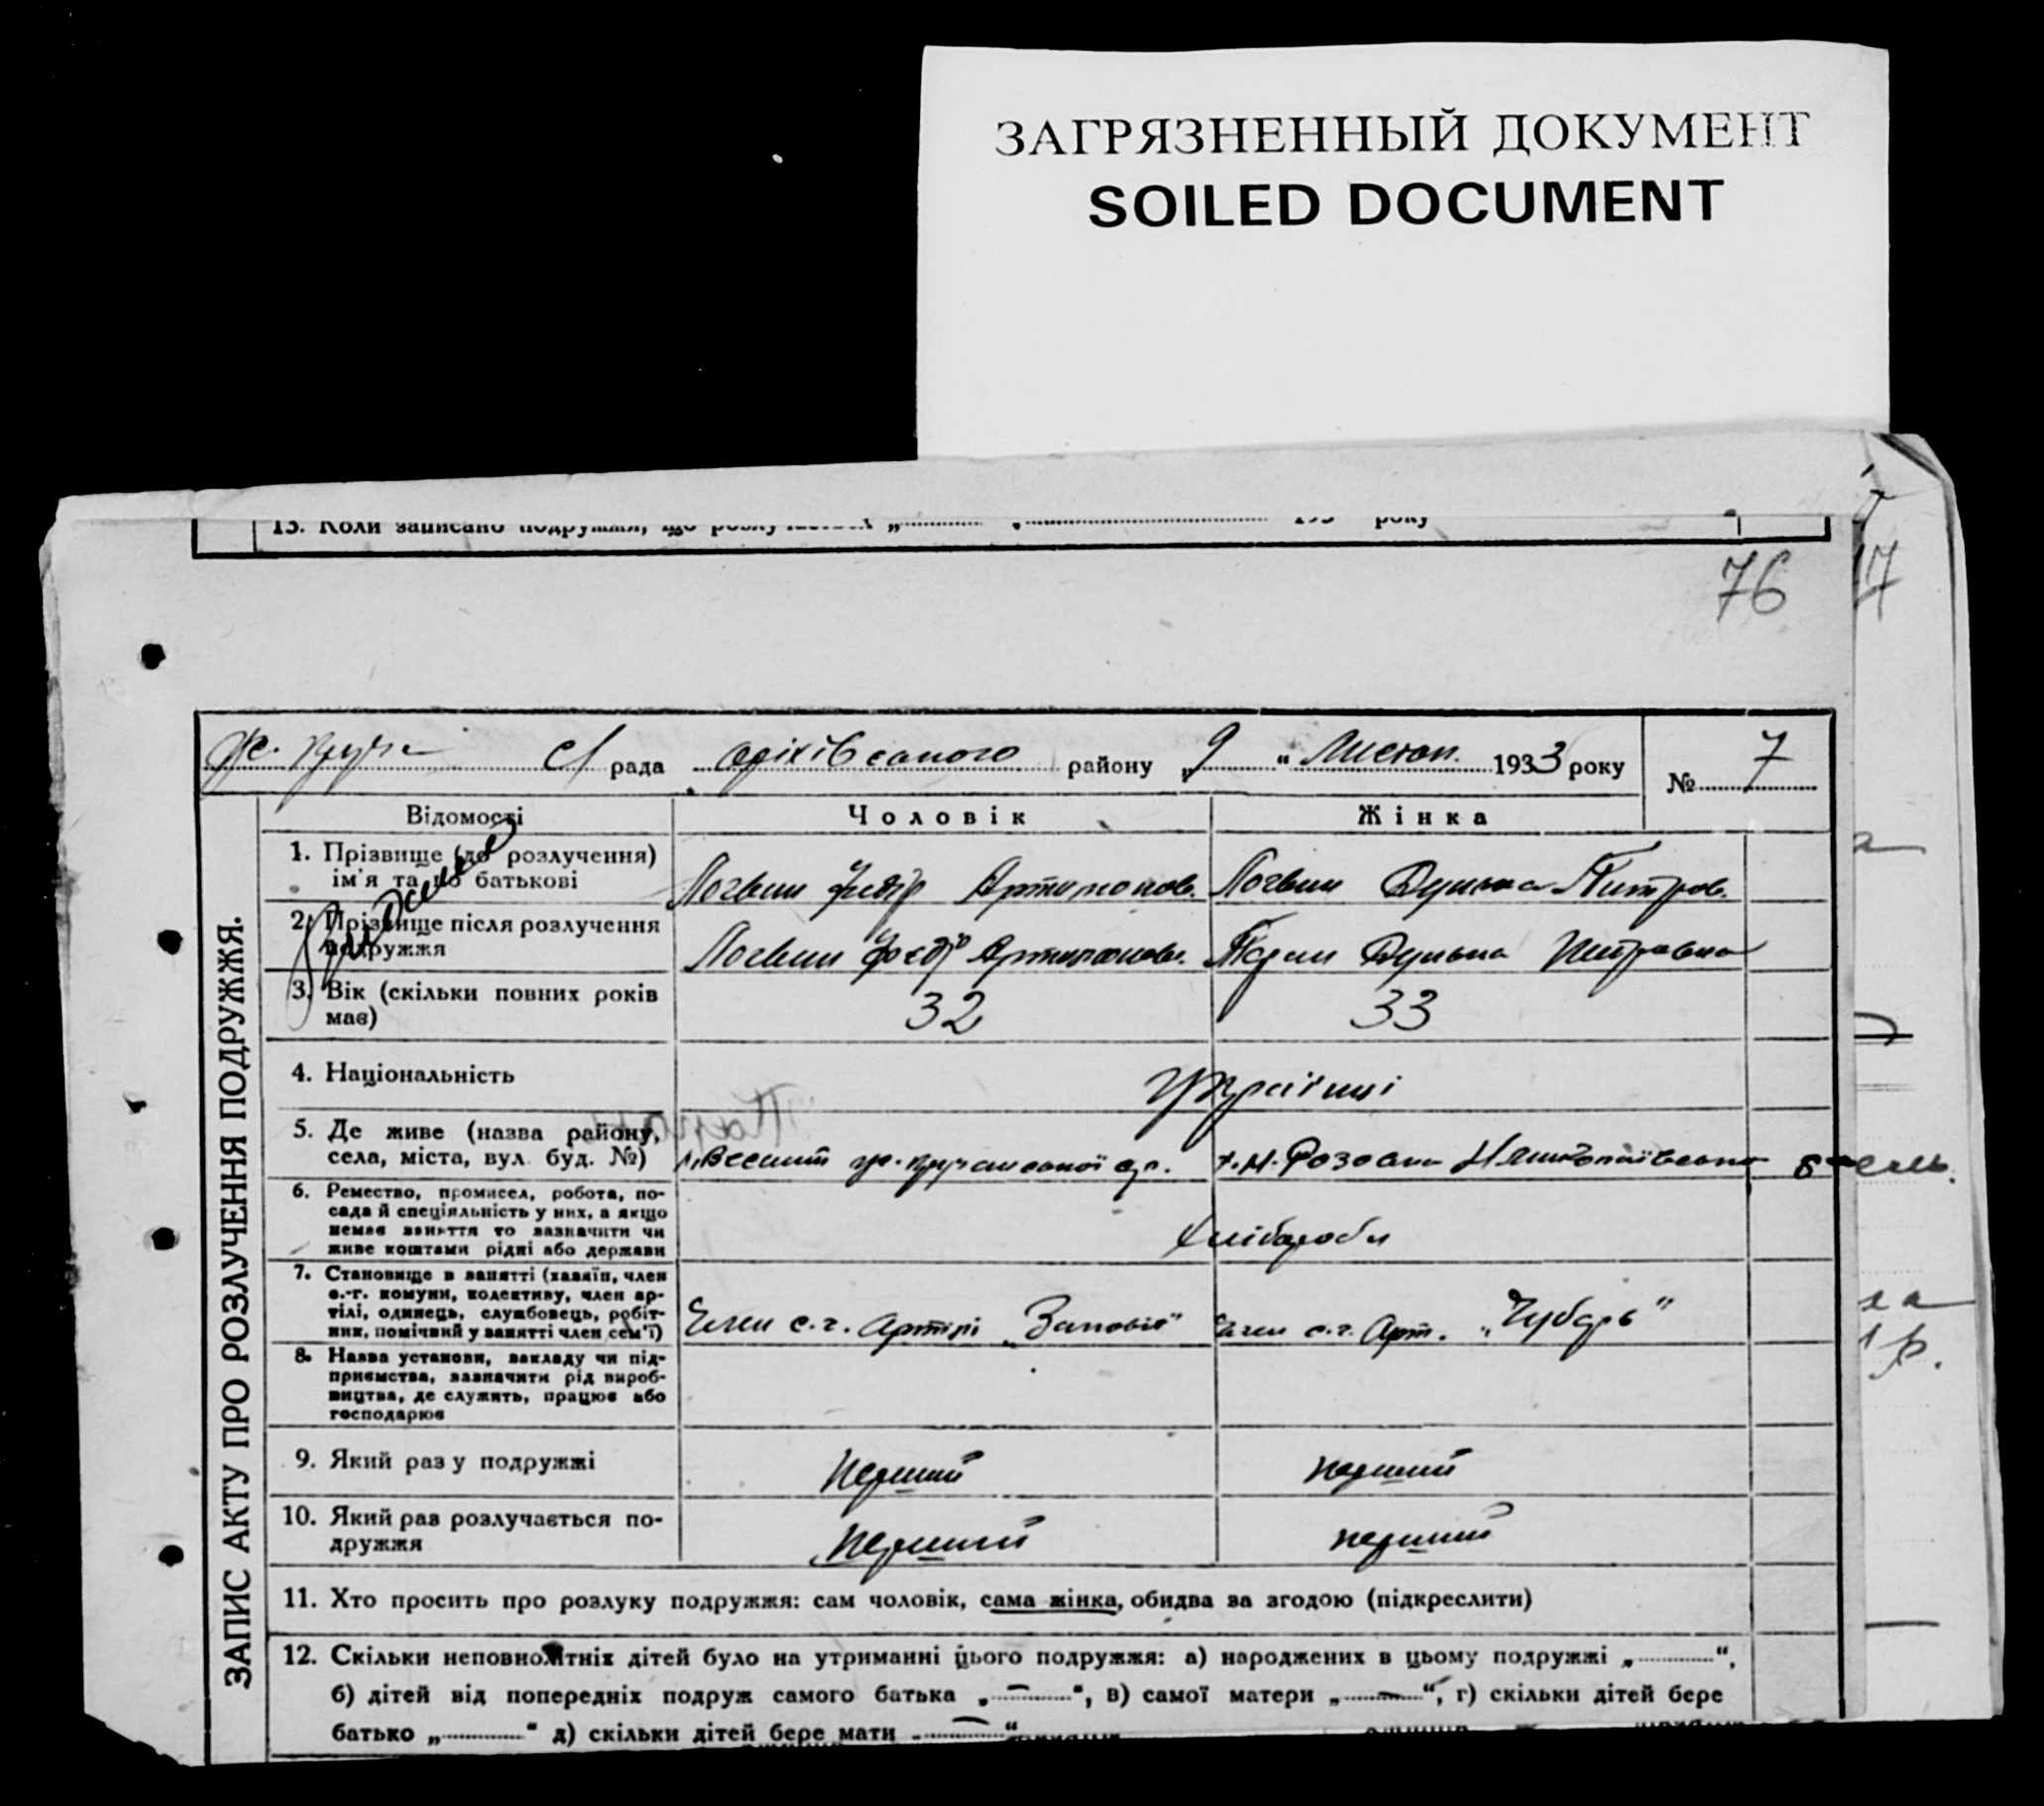 ЗАГРЯЗНЕННЫЙ ДОКУМЕНТ
SOILED DOCUMENT
13. Коли записано подружжя, що розлучається „ " 193 року
76
17
с/рада оріхівського району „9" Листоп. 1933 року
№ 7
ЗАПИС АКТУ ПРО РОЗЛУЧЕННЯ ПОДРУЖЖЯ.
Відомості Чоловік Жінка
1. Прізвище (до розлучення)
ім'я та по батькові
Логвин Федір Артимонов. Логвин Дунька Питров.
2. Прізвище після розлучення
подружжя
Логвин Федір Артимонов. Дунька Питровна
3. Вік (скільки повних років
має)
32 33
4. Національність
Українці
5. Де живе (назва району,
села, міста, вул. буд. №)
х. Н. Розовка
6. Ремество, промисел, робота, по-
сада й спеціяльність у них, а якщо
немає заняття то зазначити чи
живе коштами рідні або держави
хлібороби
7. Становище в занятті (хазяїн, член
с.-г. комуни, колективу, член ар-
тілі, одинець, службовець, робіт-
ник, помічний у занятті член сем'ї)
Член с.г. Артілі „Заповіт" Член с.г. Арт. „Чубарь"
8. Назва установи, закладу чи під-
приємства, зазначити рід вироб-
ництва, де служить, працює або
господарює
9. Який раз у подружжі
перший перший
10. Який раз розлучається по-
дружжя
перший перший
11. Хто просить про розлуку подружжя: сам чоловік, сама жінка, обидва за згодою (підкреслити)
12. Скільки неповнолітніх дітей було на утриманні цього подружжя: а) народжених в цьому подружжі „ ",
б) дітей від попередніх подруж самого батька „—", в) самої матери „—", г) скільки дітей бере
батько „ " д) скільки дітей бере мати „—"